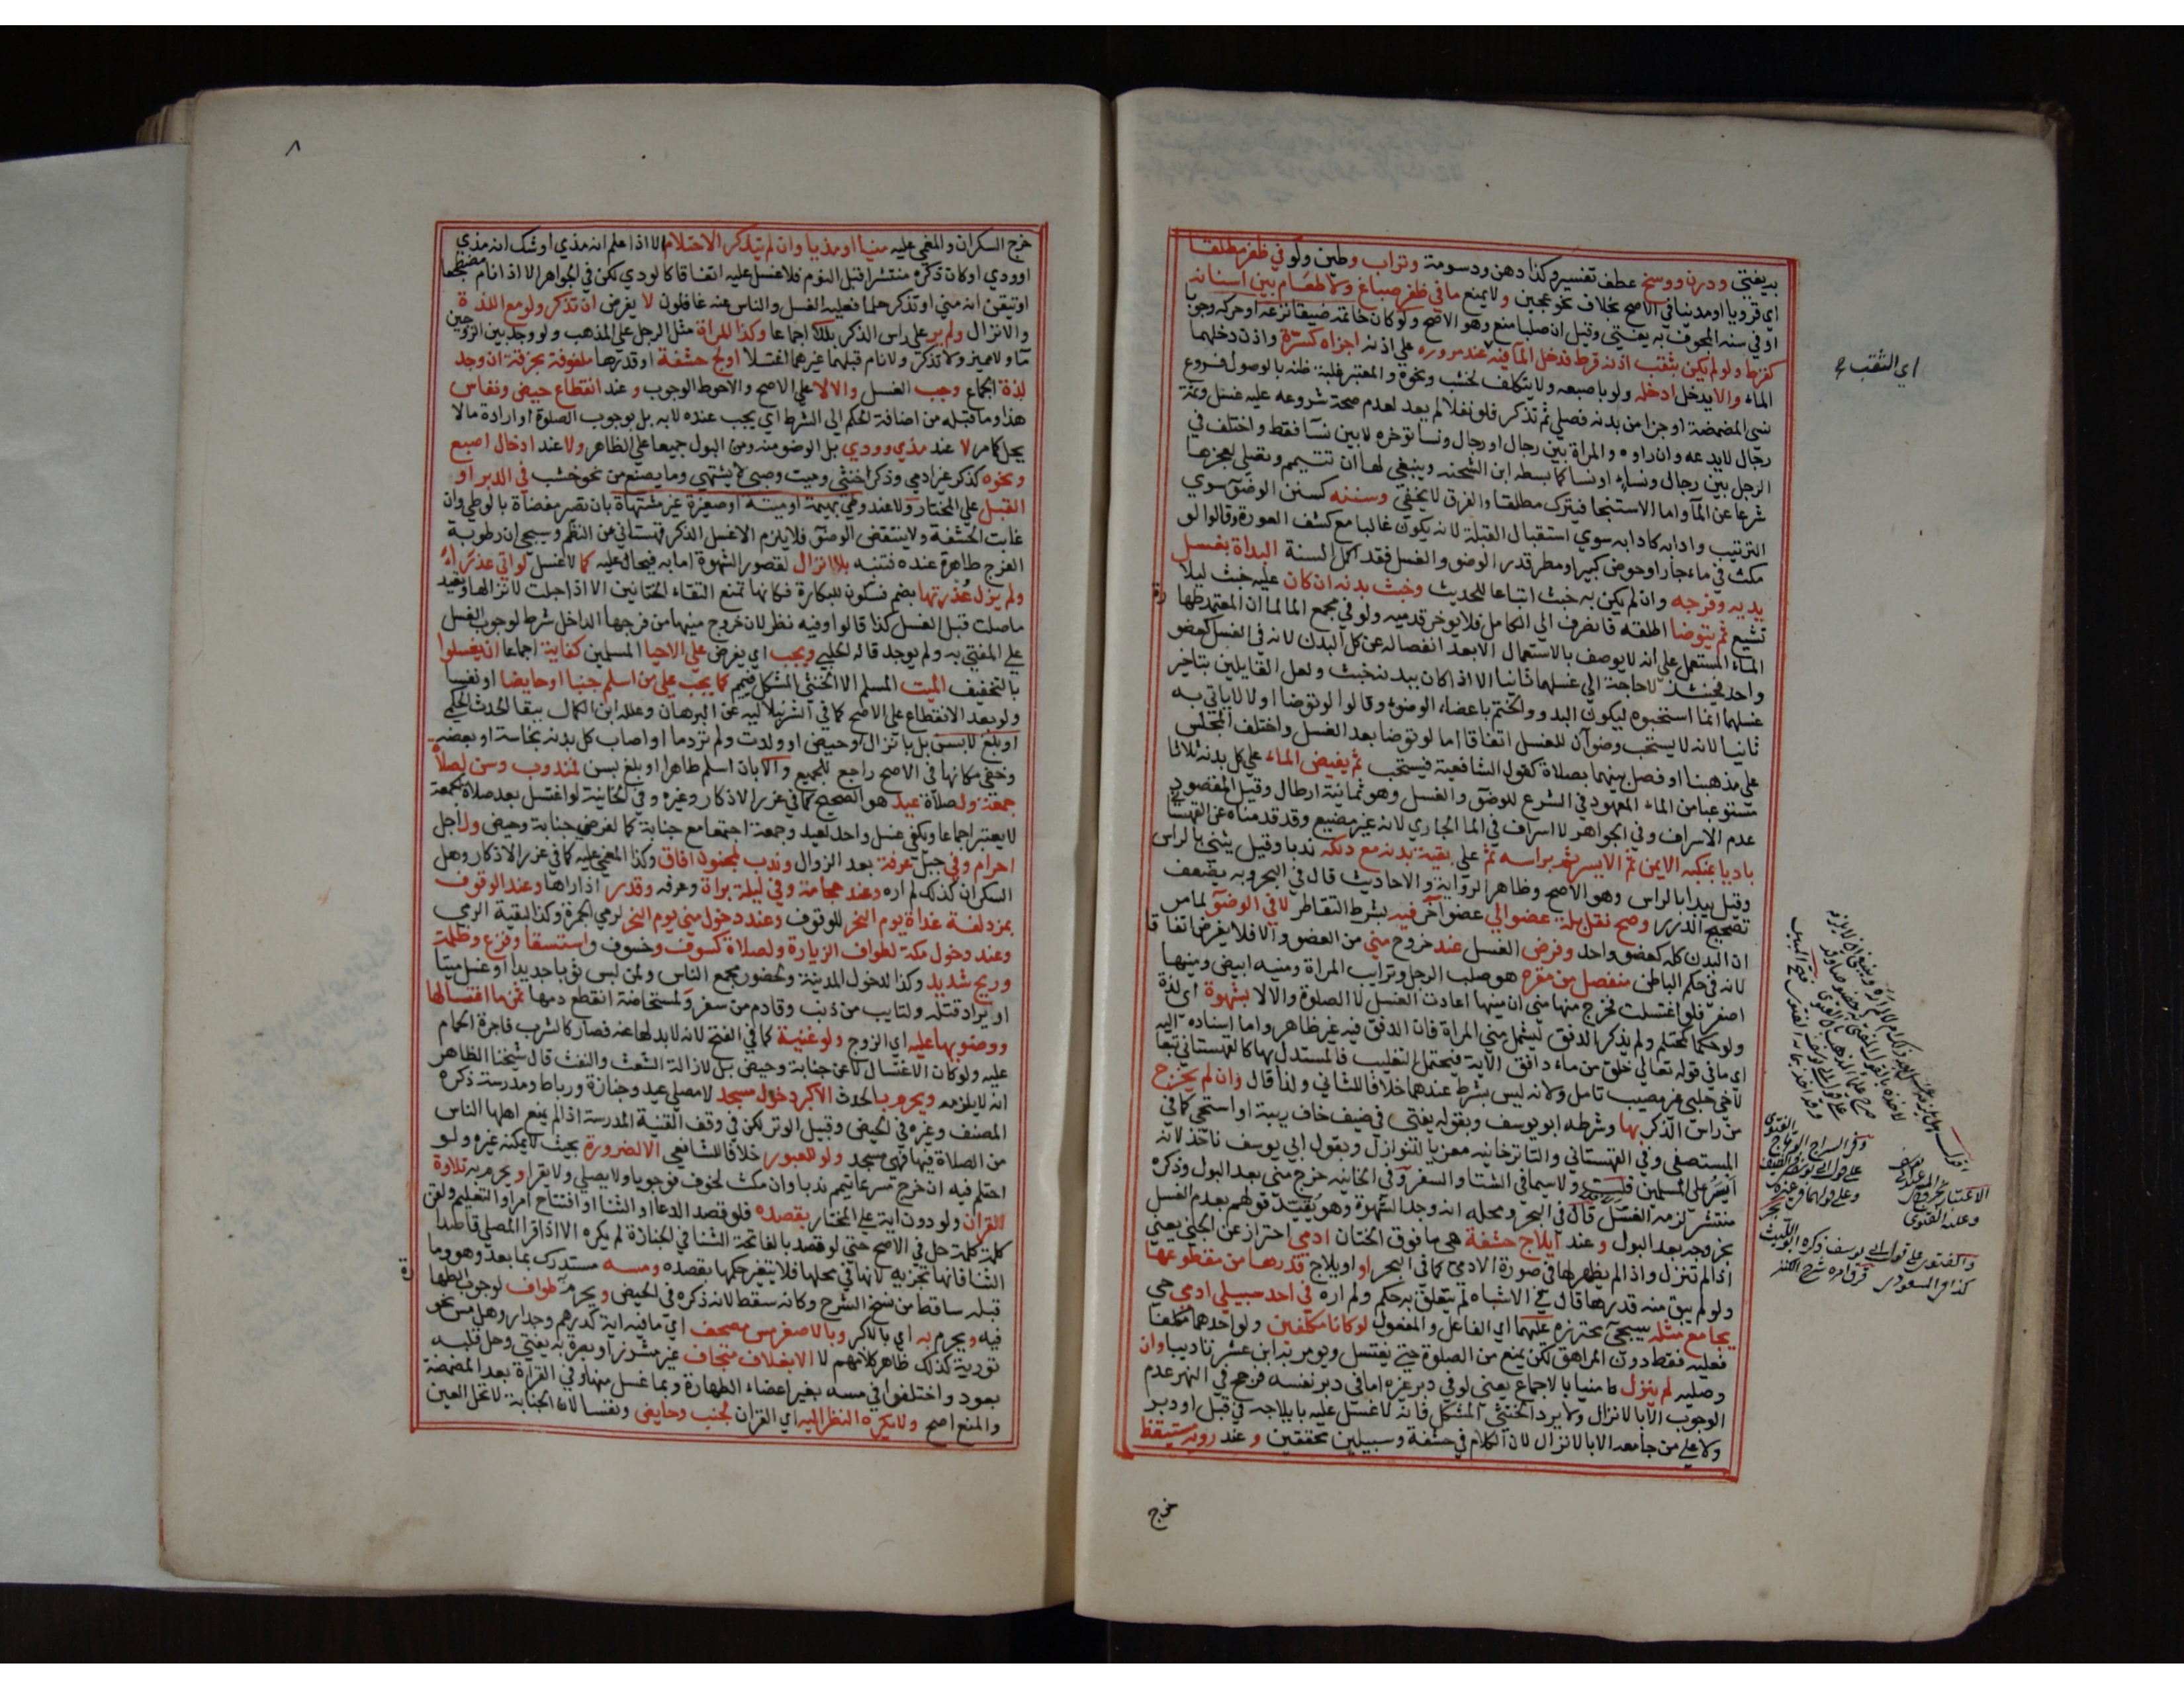 به يفتي ودرن ووسخ عطف تفسير وكذا دهن ودسومة وتراب وطين ولو في ظفر مطلقا
اي قرويا او مدنيا في الاصح بخلاف نحو عجين ولا يمنع ما في ظفر صباغ ولا طعام بين اسنانه
او في سنه المجوف به يفتي وقيل ان صلبا منع وهو الاصح ولو كان خاتمه ضيقا نزعه او حركه وجوبا
كقرط ولو لم يكن بثقب اذنه قرط فدخل الماء فيه عند مروره على اذنه اجزاه كسرة واذن دخلهما
الماء والا يدخل ادخله ولو باصبعه ولا يتكلف لخشب ونحوه والمعتبر غلبة ظنه بالوصول فروع
نسي المضمضة او جزا من بدنه فصلي ثم تذكر فلو نفلا لم يعد لعدم صحة شروعه عليه غسل وثمة
رجال لا يدعه وان راوه والمراة بين رجال او رجال ونسا توخره لا بين نسا فقط واختلف في
الرجل بين رجال ونساء او نسا كما بسطه ابن الشحنه وينبغي لها ان تتيمم وتصلي لعجزها
شرعا عن الماء واما الاستنجا فيترك مطلقا والفرق لا يخفي وسننه كسنن الوضوء سوي
الترتيب وادابه كادابه سوي استقبال القبلة لانه يكون غالبا مع كشف العورة وقالوا لو
مكث في ماء جار او حوض كبير او مطر قدر الوضو والغسل فقد اكمل السنة البداة بغسل
يديه وفرجه وان لم يكن به خبث اتباعا للحديث وخبث بدنه ان كان عليه خبث ليلا
تشيع ثم يتوضا اطلقه فانصرف الي الكامل فلا يوخر قدميه ولو في مجمع الما لما ان المعتمد طهارة
الماء المستعمل علي انه لا يوصف بالاستعمال الا بعد انفصاله عن كل البدن لانه في الغسل كعضو
واحد فحينئذ لا حاجة الي غسلهما ثانيا الا اذا كان ببدنه خبث ولعل القايلين بتاخير
غسلهما انما استحبوه ليكون البدو والختم باعضاء الوضوء وقالوا لو توضا اولا لا ياتي به
ثانيا لانه لا يستحب وضوآن للغسل اتفاقا اما لو توضا بعد الغسل واختلف المجلس
علي مذهبنا او فصل بينهما بصلاة كقول الشافعية فيستحب ثم يفيض الماء علي كل بدنه ثلاثا
مستوعبا من الماء المعهود في الشرع للوضو والغسل وهو ثمانية ارطال وقيل المقصود
عدم الاسراف وفي الجواهر لا اسراف في الما الجاري لانه غير مضيع وقد قدمناه عن القهستاني
باديا بمنكبه الايمن ثم الايسر ثم براسه ثم علي بقية بدنه مع دلكه ندبا وقيل يثني بالراس
وقيل يبدا بالراس وهو الاصح وظاهر الرواية والاحاديث قال في البحر وبه يضعف
تصحيح الدرر وصح نقل بلة عضو الي عضو آخر فيه بشرط التقاطر لا في الوضوء لما مر
ان البدن كله كعضو واحد وفرض الغسل عند خروج مني من العضو والا فلا يفرض اتفاقا
لانه في حكم الباطن منفصل من مقره هو صلب الرجل وترايب المراة ومنيه ابيض ومنيها
اصفر فلو اغتسلت فخرج منها مني ان منيها اعادت الغسل لا الصلوة والا لا بشهوة اي لذة
ولو حكما كمحتلم ولم يذكر الدفق ليشمل مني المراة فان الدفق فيه غير ظاهر واما اسناده اليه
اي ما في قوله تعالي خلق من ماء دافق الاية فيحتمل التغليب فالمستدل بها كالقهستاني تبعا
لاخي چلبي غير مصيب تامل ولانه ليس بشرط عندهما خلافا للثاني ولذا قال وان لم يخرج
من راس الذكر بها وشرطه ابو يوسف وبقوله يفتي في ضيف خاف ريبة او استحي كما في
المستصفي وفي القهستاني والتاترخانيه معزيا للنوازل وبقول ابي يوسف ناخذ لانه
ايسر علي المسلمين قلت ولا سيما في الشتا والسفر وفي الخانيه خرج مني بعد البول وذكره
منتشر لزمه الغسل قال في البحر ومحله ان وجد الشهوة وهو يقيد قولهم بعدم الغسل
بخروجه بعد البول وعند ايلاج حشفة هي ما فوق الختان ادمي احتراز عن الجني يعني
اذا لم تنزل واذا لم يظهر لها في صورة الادمي كما في البحر او ايلاج قدرها من مقطوعها
ولو لم يبق منه قدرها قال في الاشباه لم يتعلق به حكم ولم اره في احد سبيلي ادمي حي
يجامع مثله سيجي محترزه عليهما اي الفاعل والمفعول لو كانا مكلفين ولو احدهما مكلفا
فعليه فقط دون المراهق لكن يمنع من الصلوة حتي يغتسل ويومر به ابن عشر تاديبا وان
وصليه لم ينزل منيا بالاجماع يعني لو في دبر غيره اما في دبر نفسه فرجح في النهر عدم
الوجوب الا بالانزال ولا يرد الخنثي المشكل فانه لا غسل عليه بايلاجه في قبل او دبر
ولا علي من جامعه الا بالانزال لان الكلام في حشفة وسبيلين محققين وعند روية مستيقظ
خرج
اي الثقب
وفي السراج الوهاج الفتوي
علي قول ابي يوسف في الضيف
وعلي قولهما في غيره
بحر
وعليه الفتوي
والفتوي علي قول ابي يوسف ذكره ابو الليث
٨
خرج السكران والمغمي عليه منيا او مذيا وان لم يتذكر الاحتلام الا اذا علم انه مذي او شك انه مذي
او ودي او كان ذكره منتشرا قبل النوم فلا غسل عليه اتفاقا كالودي لكن في الجواهر الا اذا نام مضطجعا
او تيقن انه مني او تذكر حلما فعليه الغسل والناس عنه غافلون لا يفرض ان تذكر ولو مع اللذة
والانزال ولم ير علي راس الذكر بللا اجماعا وكذا المراة مثل الرجل علي المذهب ولو وجد بين الزوجين
ماء ولا مميز ولا تذكر ولا نام قبلهما غيرهما اغتسلا اولج حشفة او قدرها ملفوفة بخرقة ان وجد
لذة الجماع وجب الغسل والا لا علي الاصح والاحوط الوجوب وعند انقطاع حيض ونفاس
هذا وما قبله من اضافة الحكم الي الشرط اي يجب عنده لا به بل بوجوب الصلوة او ارادة ما لا
يحل كما مر لا عند مذي وودي بل الوضو منه ومن البول جميعا علي الظاهر ولا عند ادخال اصبع
ونحوه كذكر غير ادمي وذكر خنثي وميت وصبي لا يشتهي وما يصنع من نحو خشب في الدبر او
القبل علي المختار ولا عند وطي بهيمة او ميتة او صغيرة غير مشتهاة بان تصير مفضاة بالوطي وان
غابت الحشفة ولا ينتقض الوضوء فلا يلزم الا غسل الذكر قهستاني عن النظم وسيجي ان رطوبة
الفرج طاهرة عنده فتنبه بلا انزال لقصور الشهوة اما به فيحال عليه كما لا غسل لو اتي عذراء
ولم يزل عذرتها بضم فسكون البكارة فكانها تمنع التقاء الختانين الا اذا حبلت لانزالها وتعيد
ما صلت قبل الغسل كذا قالوا وفيه نظر لان خروج منيها من فرجها الداخل شرط لوجوب الغسل
علي المفتي به ولم يوجد قاله الحلبي ويجب اي يفرض علي الاحيا المسلمين كفاية اجماعا ان يغسلوا
بالتخفيف الميت المسلم الا الخنثي المشكل فييمم كما يجب علي من اسلم جنبا او حايضا او نفسا
ولو بعد الانقطاع علي الاصح كما في الشرنبلاليه عن البرهان وعلله ابن الكمال ببقا الحدث الحكمي
او بلغ لا بسن بل بانزال او حيض او ولدت ولم تر دما او اصاب كل بدنه نجاسة او بعضه
وخفي مكانها في الاصح راجع للجميع والا بان اسلم طاهرا او بلغ بسن فمندوب وسن لصلاة
جمعة ولصلاة عيد هو الصحيح كما في غرر الاذكار وغيره وفي الخانية لو اغتسل بعد صلاة الجمعة
لا يعتبر اجماعا ويكفي غسل واحد لعيد وجمعة اجتمعا مع جنابة كما لفرضي جنابة وحيض ولاجل
احرام وفي جبل عرفة بعد الزوال وندب لمجنون افاق وكذا المغمي عليه كما في غرر الاذكار وهل
السكران كذلك لم اره وعند حجامة وفي ليلة براة وعرفة وقدر اذا راها وعند الوقوف
بمزدلفة غداة يوم النحر للوقوف وعند دخول مني يوم النحر لرمي الجمرة وكذا لبقية الرمي
وعند دخول مكة لطواف الزيارة ولصلاة كسوف وخسوف واستسقا وفزع وظلمة
وريح شديد وكذا لدخول المدينة ولحضور مجمع الناس ولمن لبس ثوبا جديدا او غسل ميتا
او يراد قتله ولتايب من ذنب وقادم من سفر ولمستحاضة انقطع دمها ثمن ما اغتسالها
ووضوئها عليه اي الزوج ولو غنية كما في الفتح لانه لا بد لها عنه فصار كالشرب فاجرة الحمام
عليه ولو كان الاغتسال لا عن جنابة وحيض بل لازالة الشعث والتفث قال شيخنا الظاهر
انه لا يلزمه ويحرم بالحدث الاكبر دخول مسجد لا مصلي عيد وجنازة ورباط ومدرسة ذكره
المصنف وغيره في الحيض وقبيل الوتر لكن في وقف القنية المدرسة اذا لم يمنع اهلها الناس
من الصلاة فيها فهي مسجد ولو للعبور خلافا للشافعي الا لضرورة بحيث لا يمكنه غيره ولو
احتلم فيه ان خرج مسرعا تيمم ندبا وان مكث لخوف فوجوبا ولا يصلي ولا يقرا ويحرم به تلاوة
القران ولو دون اية علي المختار بقصده فلو قصد الدعا او الثنا او افتتاح امر او التعليم ولقن
كلمة كلمة حل في الاصح حتي لو قصد بالفاتحة الثنا في الجنازة لم يكره الا اذا قرا المصلي قاصدا
الثنا فانها تجزيه لانها في محلها فلا يتغير حكمها بقصده ومسه مستدرك بما بعده وهو وما
قبله ساقط من نسخ الشرح وكانه سقط لانه ذكره في الحيض ويحرم به طواف لوجوب الطهارة
فيه ويحرم به اي بالاكبر وبالاصغر مس مصحف اي ما فيه اية كدرهم وجدار وهل مس نحو
تورية كذلك ظاهر كلامهم لا الا بغلاف متجاف غير مشرز او بصرة به يفتي وحل قلبه
بعود واختلفوا في مسه بغير اعضاء الطهارة وبما غسل منها وفي القراة بعد المضمضة
والمنع اصح ولا يكره النظر اليه اي القران لجنب وحايض ونفسا لان الجنابة لا تحل العين